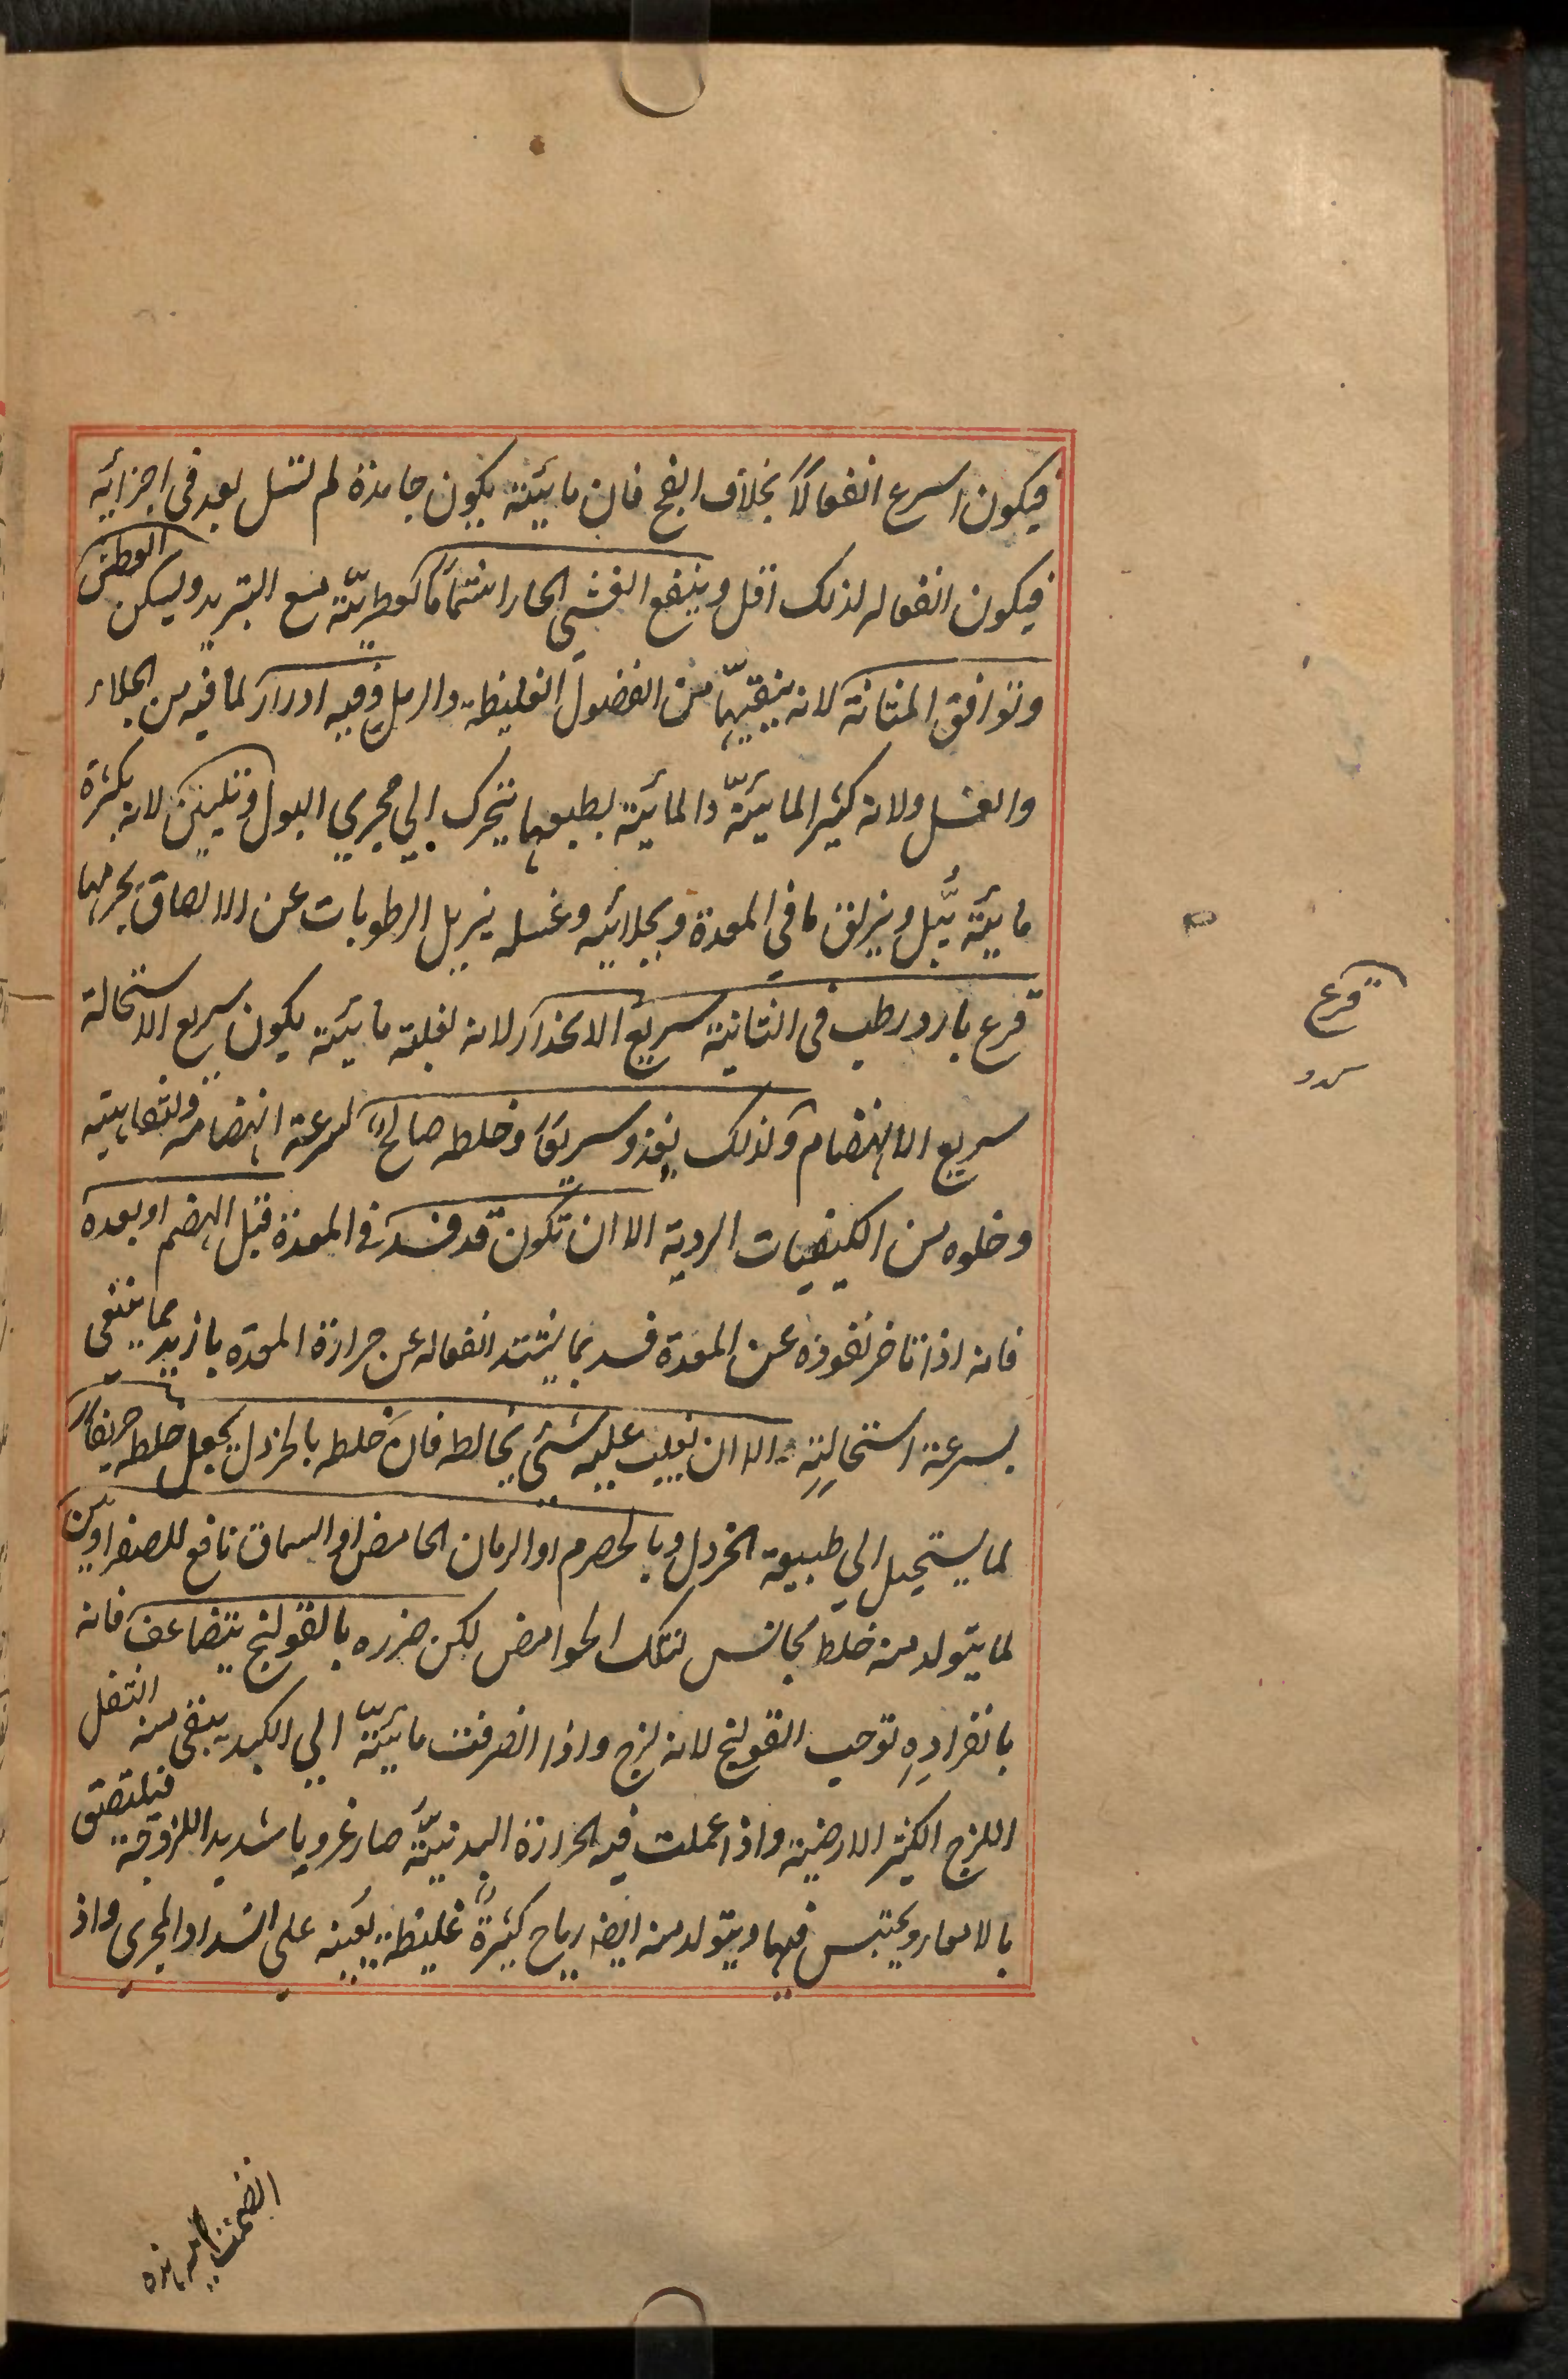 فيكون اسرع انفعالاً بخلاف الفج فان مائيته يكون جامدة لم تسل بعد فى اجزائه
فيكون انفعاله لذلك اقل وينفع الغشى الحار اشتماماً لعطريّته مع التبريد ويسكن العطش
وتوافق المثانة لانه ينقيّها من الفضول الغليظة والرمل وفيه ادرار لما فيه من الجلاء
والغسل ولانه كثير المائيّة والمائية بطبعها يتحرك الى مجرى البول وتليين لانه بكثرة
مائيته يبّل ويزلق ما فى المعدة وبجلائيه وغسله يزيل الرطوبات عن الالصاق بجرمها
قرع بارد رطب فى الثانية سريع الانحدار لانه لغلبة مائيته يكون سريع الاستحالة
سريع الانهضام ولذلك يغذو سريعاً وخلطه صالح لسرعة انهضامه ولتفاهيته
وخلوه من الكيفيات الردية الا ان تكون قد فسد فى المعدة قبل الهضم او بعده
فانه اذا تاخر نفوذه عن المعدة فسد بما يشتد انفعاله عن حرارة المعدة بازيد مما ينبغى
بسرعة استحالتِهِ الا ان يغلب عليه شئى يخالطه فان خلط بالخردل يجعل خلطه حريفاً
لما يستحيل الى طبيعة الخردل وبالحصرم او الرمان الحامض او السماق نافع للصفراويين
لما يتولد منه خلط مجانس لتلك الحوامض لكن ضرره بالقولنج يتضاعف فانه
بانفرادِهِ توجب القولنج لانه لزج واذا انصرفت مائيّته الى الكبد يبقى منه الثفل
اللزج الكثير الارضية واذا عملت فيه الحرارة البدنيّة صار غرويا شديد اللزوجة فيلتصق
بالامعاء ويحتبس فيها ويتولد منه ايضا رياح كثيرةٌ غليظة يعينه على انسداد المجرى واذ
قرع
كدو
انضمت اليه هذه